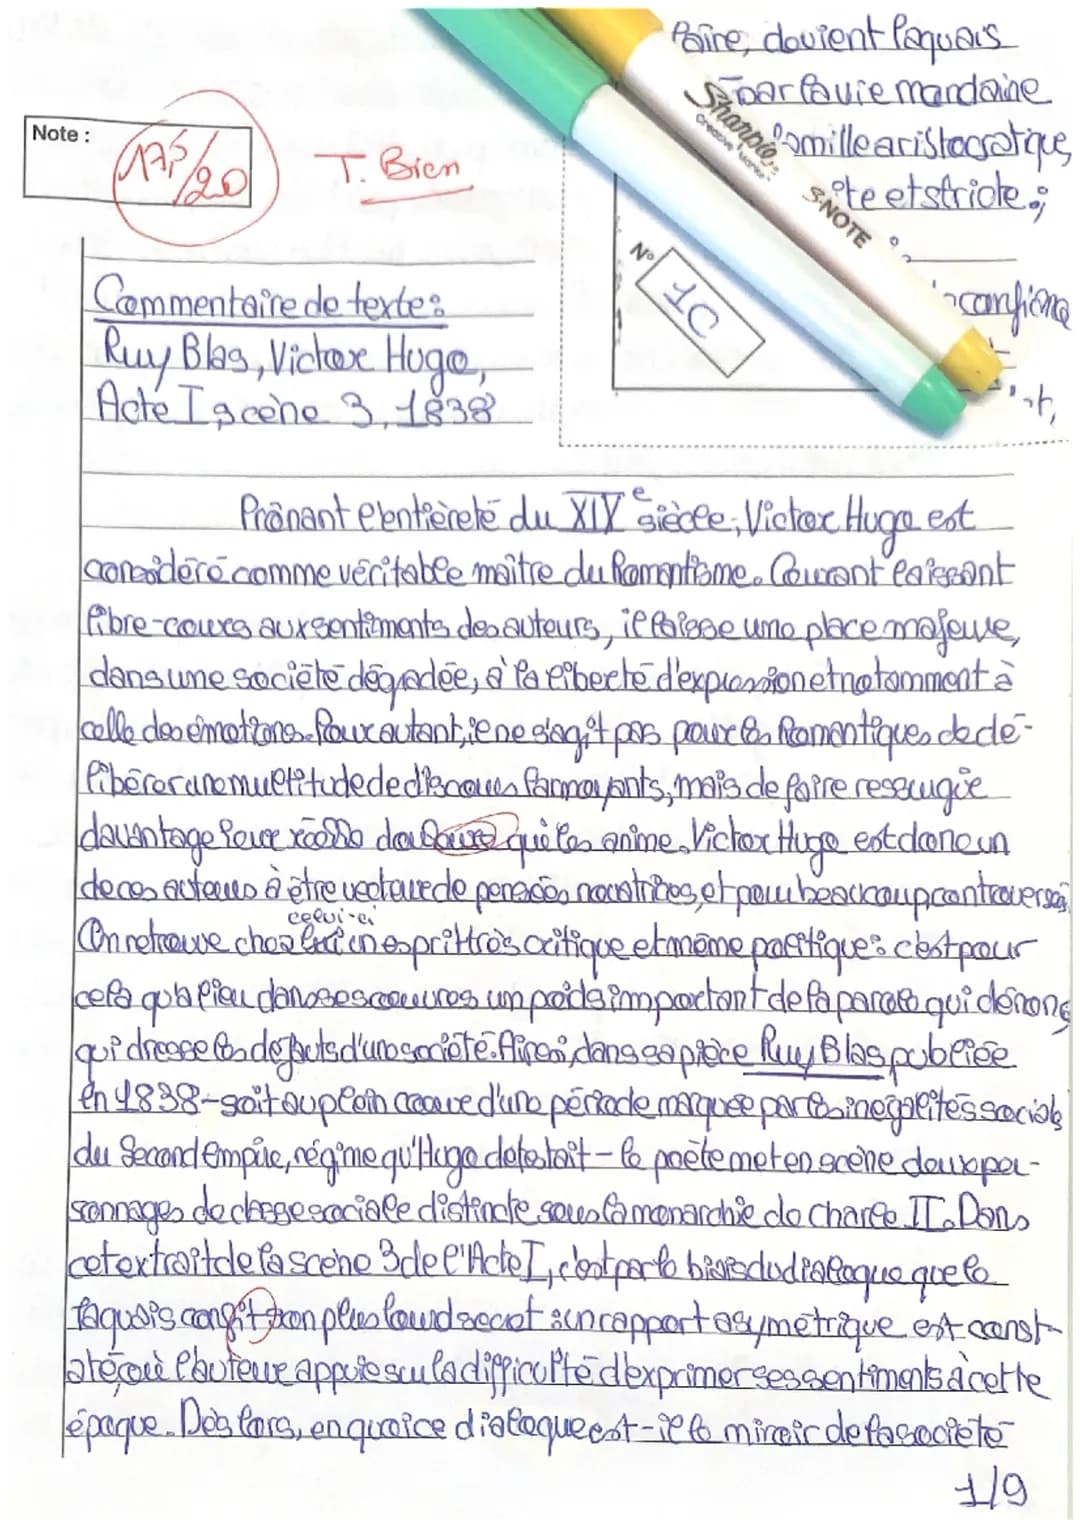 faire, devient laquais
par la vie mondaine
famille aristocratique,
et stricte ;
Sharpie
creative marker
S-NOTE
Note :
17,5/20
T. Bien
N°
1C
Commentaire de texte :
Ruy Blas, Victor Hugo,
Acte I scène 3, 1838
Prônant l'entièreté du XIXe siècle, Victor Hugo est
considéré comme véritable maître du Romantisme. Courant laissant
libre-cours aux sentiments des auteurs, il laisse une place majeure,
dans une société dégradée, à la liberté d'expression et notamment à
celle des émotions. Pour autant, il ne s'agit pas pour les Romantiques de dé-
libérer une multitude de discours larmoyants, mais de faire ressurgir
davantage leur qui les anime. Victor Hugo est donc un
de ces auteurs à être vecteur de pensées novatrices, et pour beaucoup controversées
On retrouve chez celui-ci un esprit très critique et même politique : c'est pour
cela qu'a lieu dans ses œuvres un poids important de la parole qui dénonce
qui dresse les défauts d'une société. Ainsi, dans sa pièce Ruy Blas publiée
en 1838 - soit au plein cœur d'une période marquée par les inégalités sociales
du Second Empire, régime qu'Hugo détestait - le poète met en scène deux per-
sonnages de classe sociale distincte sous la monarchie de Charle II. Dans
cet extrait de la scène 3 de l'Acte I, c'est par le biais du dialogue que le
laquais confit son plus lourd secret : un rapport asymétrique est const-
até où l'auteur appuie sur la difficulté d'exprimer ses sentiments à cette
époque. Dès lors, en quoi ce dialogue est-il le miroir de la société
1/9